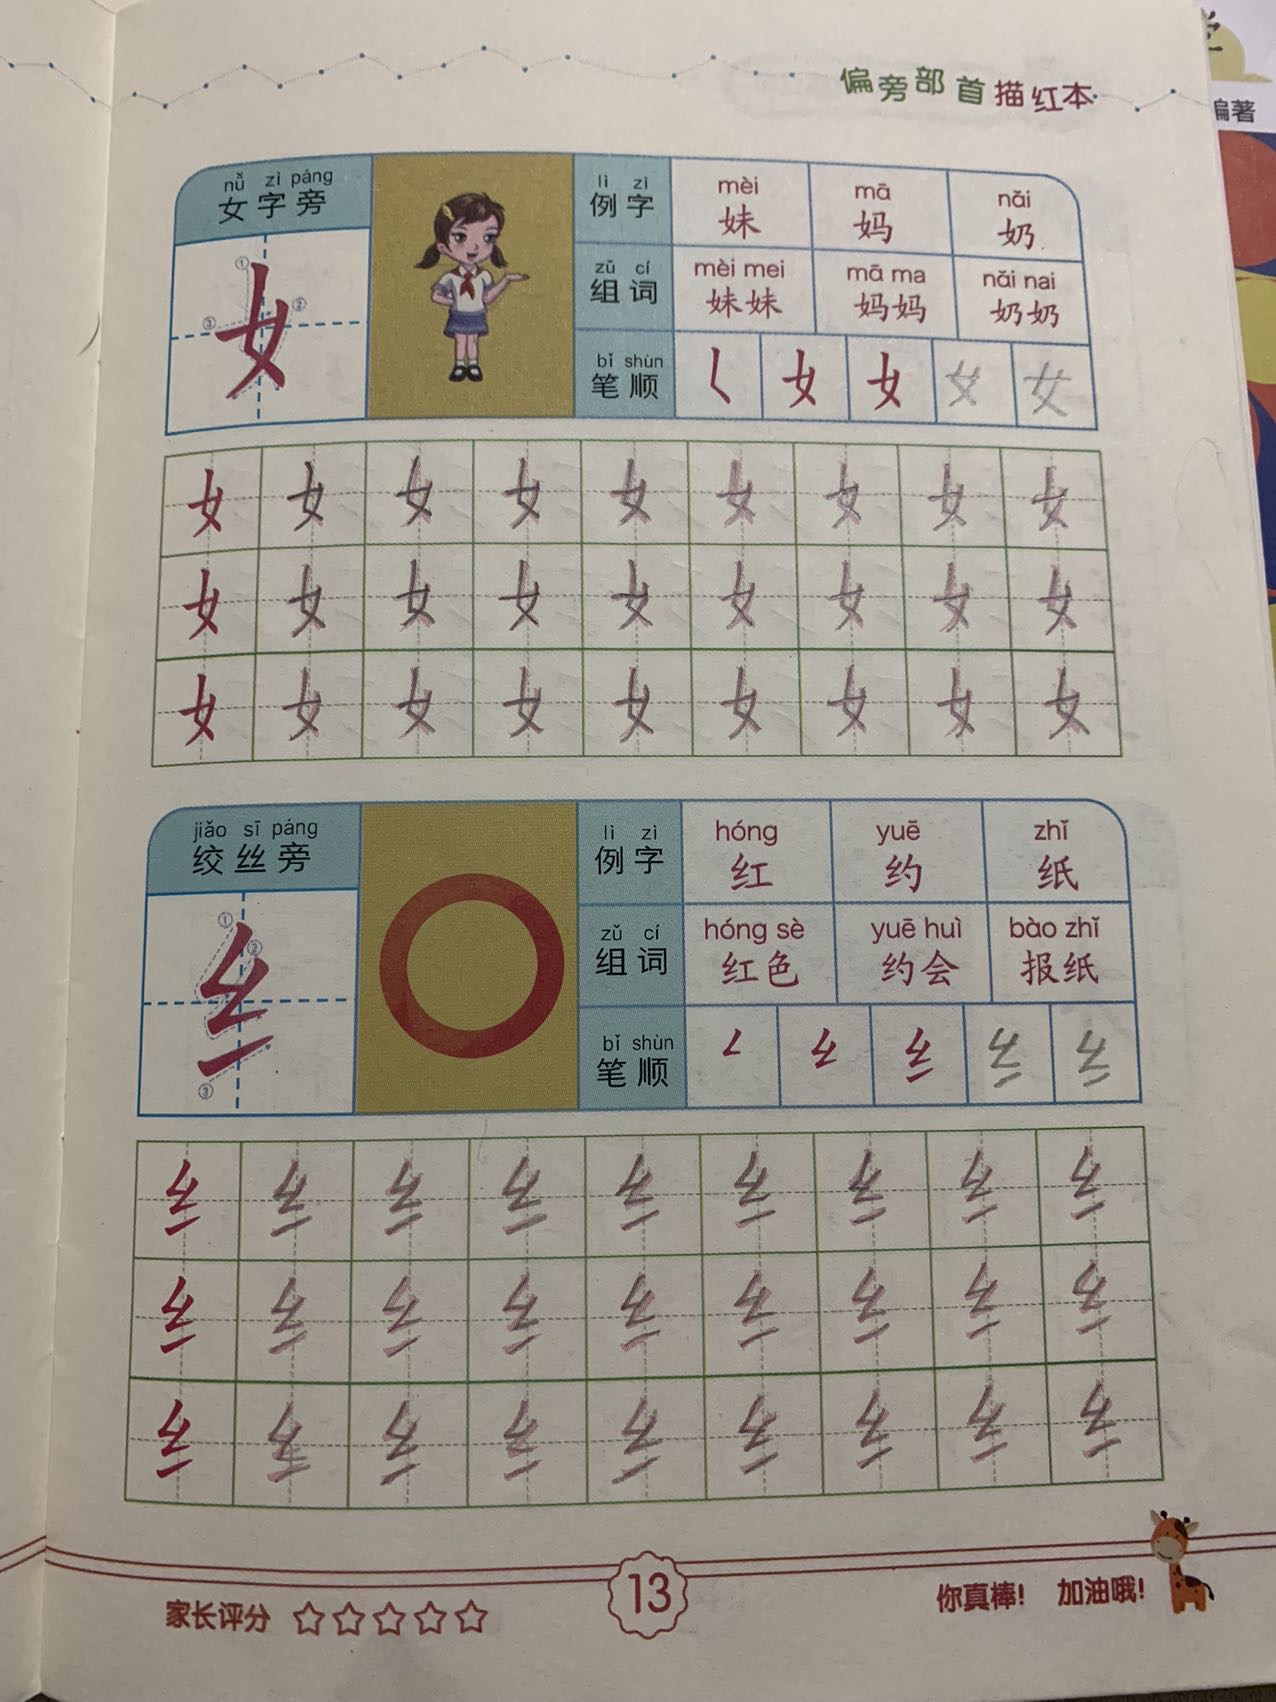 偏旁部首描红本
编著
nǚ zì páng
女字旁
① ② ③
女
lì zì
例字
mèi mā nǎi
妹 妈 奶
zǔ cí
组词
mèi mei mā ma nǎi nai
妹妹 妈妈 奶奶
bǐ shùn
笔顺
𡿨 女 女 女 女
女 女 女 女 女 女 女 女 女
女 女 女 女 女 女 女 女 女
女 女 女 女 女 女 女 女 女
jiǎo sī páng
绞丝旁
① ② ③
纟
lì zì
例字
hóng yuē zhǐ
红 约 纸
zǔ cí
组词
hóng sè yuē huì bào zhǐ
红色 约会 报纸
bǐ shùn
笔顺
纟 纟 纟
纟 纟 纟 纟 纟 纟 纟 纟 纟
纟 纟 纟 纟 纟 纟 纟 纟 纟
纟 纟 纟 纟 纟 纟 纟 纟 纟
家长评分 ☆☆☆☆☆
13
你真棒! 加油哦!